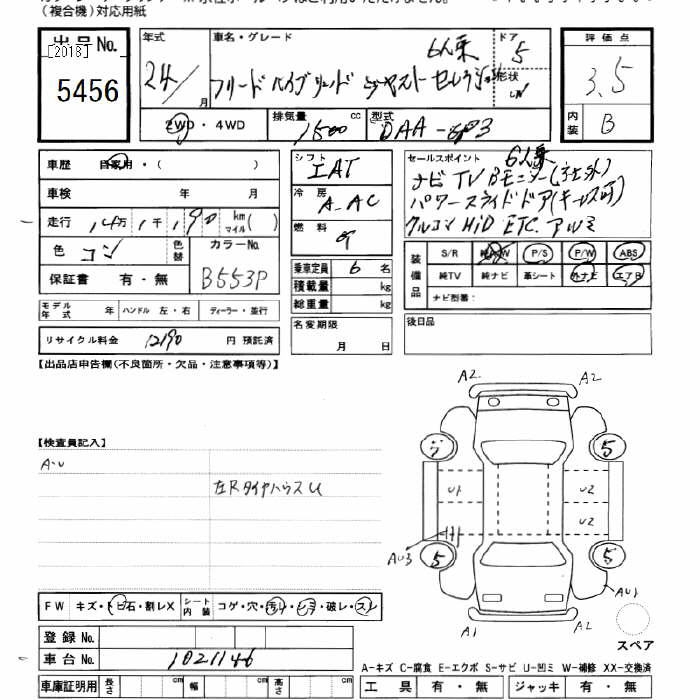 (複合機)対応用紙
出品No.
[2018]
5456
年式
24/ 月
車名・グレード
6人乗
フリード ハイブリッド ジャストセレクション
ドア
5
形状
評価点
3.5
内装
B
2WD・4WD
排気量
1500 cc
型式
DAA-GP3
車歴 自家用・( )
車検 年 月
走行 14万 1千 190 km マイル( )
色 コン
色替
カラーNo.
B553P
保証書 有・無
モデル年式 年 ハンドル 左・右 ディーラー・並行
リサイクル料金 12190 円 預託済
シフト
IAT
冷房
A-AC
燃料
乗車定員 6 名
積載量 kg
総重量 kg
名変期限
月 日
セールスポイント
6人乗
ナビ TV Bモニター(社外)
パワースライドドア(キール可)
クルコン HiD ETC. アルミ
装備品
S/R 純AW P/S P/W ABS
純TV 純ナビ 革シート 外ナビ エアB
ナビ型番:
後日品
【出品店申告欄(不良箇所・欠品・注意事項等)】
【検査員記入】
A・U
左Rタイヤハウス U
A2 A2
5 5
U1 U2
U2
AU3 5 5
AU1
A1 A2
スペア
FW キズ・トビ石・割レX
シート内装 コゲ・穴・汚レ・シミ・破レ・スレ
登録No.
車台No. 1021146
車庫証明用 長さ cm 幅 cm 高さ cm
A-キズ C-腐食 E-エクボ S-サビ U-凹ミ W-補修 XX-交換済
工具 有・無 ジャッキ 有・無